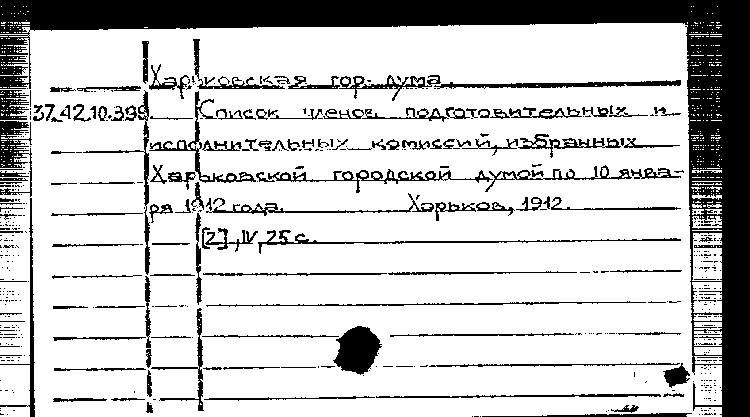 Харьковская гор. дума.
37.42.10.399. Список членов подготовительных и
исполнительных комиссий, избранных
Харьковской городской думой по 10 янва-
ря 1912 года. Харьков, 1912.
[2], IV, 25 с.